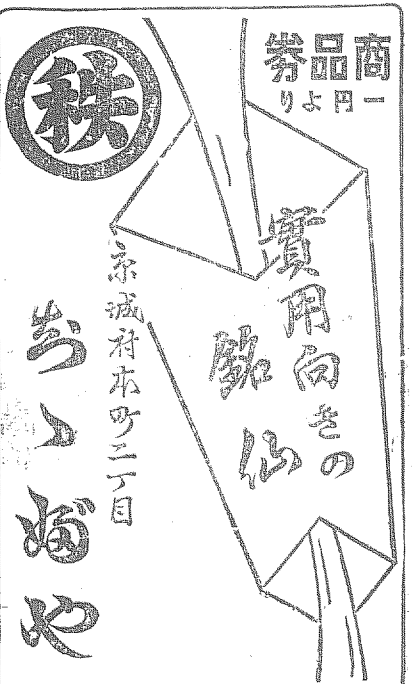 商品券
一円より
實用向きの
銘仙
京城府本町二丁目
秩
ちゝぶや